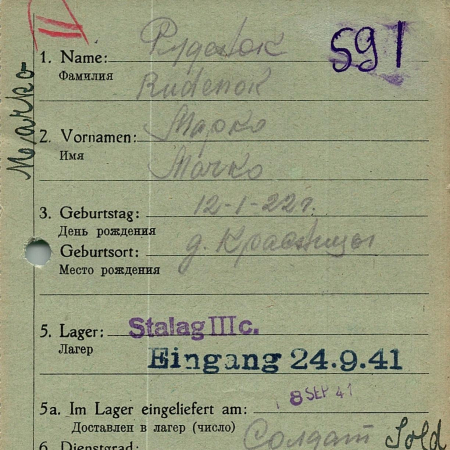 II
591
Marko
1. Name: Руденок
Фамилия Rudenok
2. Vornamen: Марко
Имя Marko
3. Geburtstag: 12-1-22г.
День рождения
Geburtsort: д.
Место рождения
5. Lager: Stalag III c.
Лагер Eingang 24.9.41
8 SEP 41
5a. Im Lager eingeliefert am:
Доставлен в лагер (число)
6. Dienstgrad: Солдат Sold